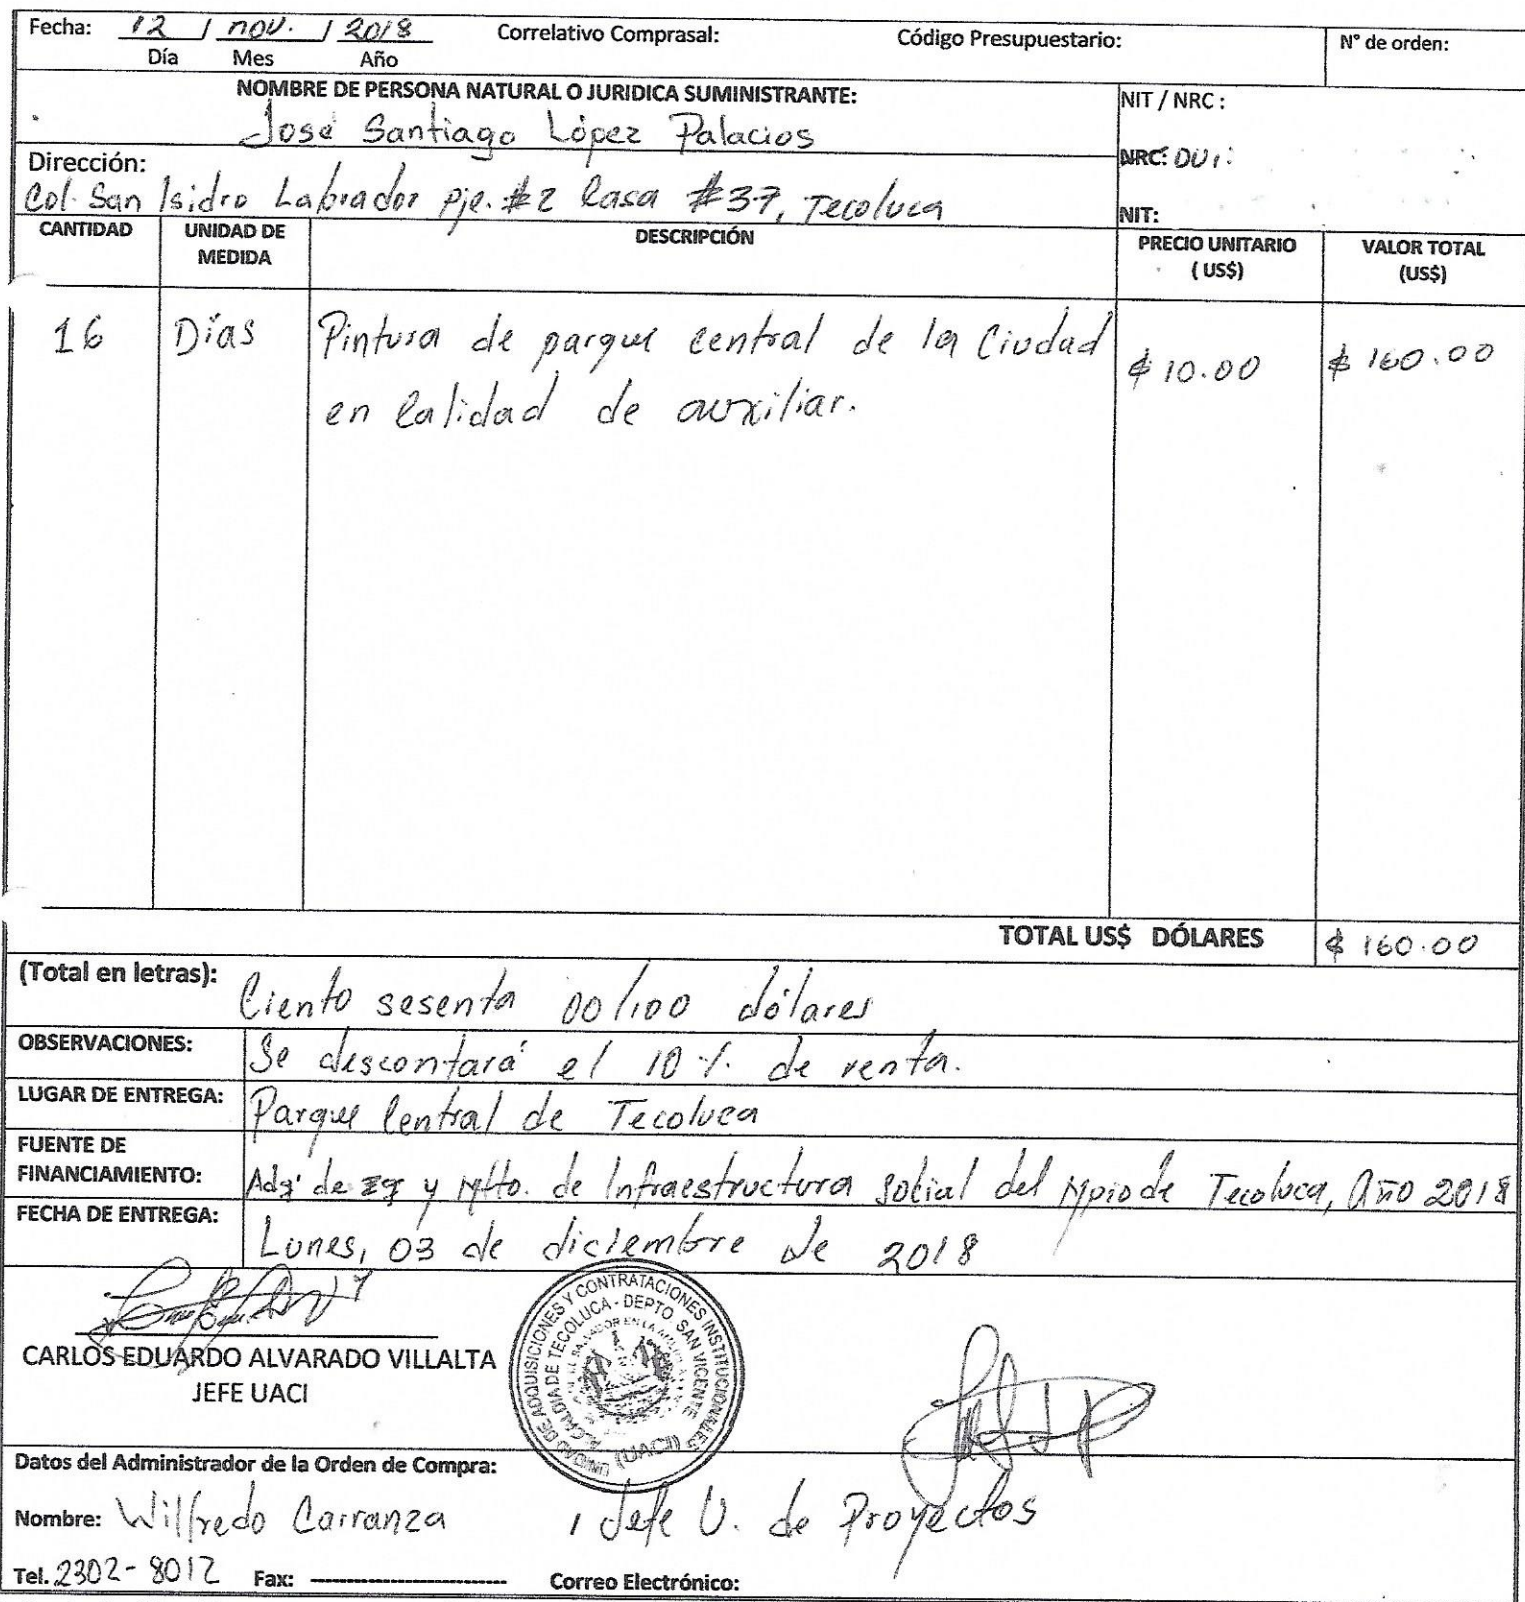 Fecha: 12 / nov. / 2018 Correlativo Comprasal: Código Presupuestario: N° de orden:
Día Mes Año
NOMBRE DE PERSONA NATURAL O JURIDICA SUMINISTRANTE: NIT / NRC :
José Santiago López Palacios
Dirección: NRC: DUI:
Col. San Isidro Labrador pje. #2 Casa #37, Tecoluca NIT:
CANTIDAD UNIDAD DE MEDIDA DESCRIPCIÓN PRECIO UNITARIO ( US$) VALOR TOTAL (US$)
16 Días Pintura de parque central de la Ciudad $ 10.00 $ 160.00
en Calidad de auxiliar.
TOTAL US$ DÓLARES $ 160.00
(Total en letras): Ciento sesenta 00/100 dólares
OBSERVACIONES: Se descontará el 10 %. de renta.
LUGAR DE ENTREGA: Parque Central de Tecoluca
FUENTE DE
FINANCIAMIENTO: de y Mtto. de Infraestructura Social del Mpio de Tecoluca, Año 2018
FECHA DE ENTREGA: Lunes, 03 de diciembre de 2018
UNIDAD DE ADQUISICIONES Y CONTRATACIONES INSTITUCIONALES
ALCALDIA DE TECOLUCA - DEPTO. SAN VICENTE
(UACI)
CARLOS EDUARDO ALVARADO VILLALTA
JEFE UACI
Datos del Administrador de la Orden de Compra:
Nombre: Wilfredo Carranza , Jefe U. de Proyectos
Tel. 2302-8012 Fax: ------------------------- Correo Electrónico: